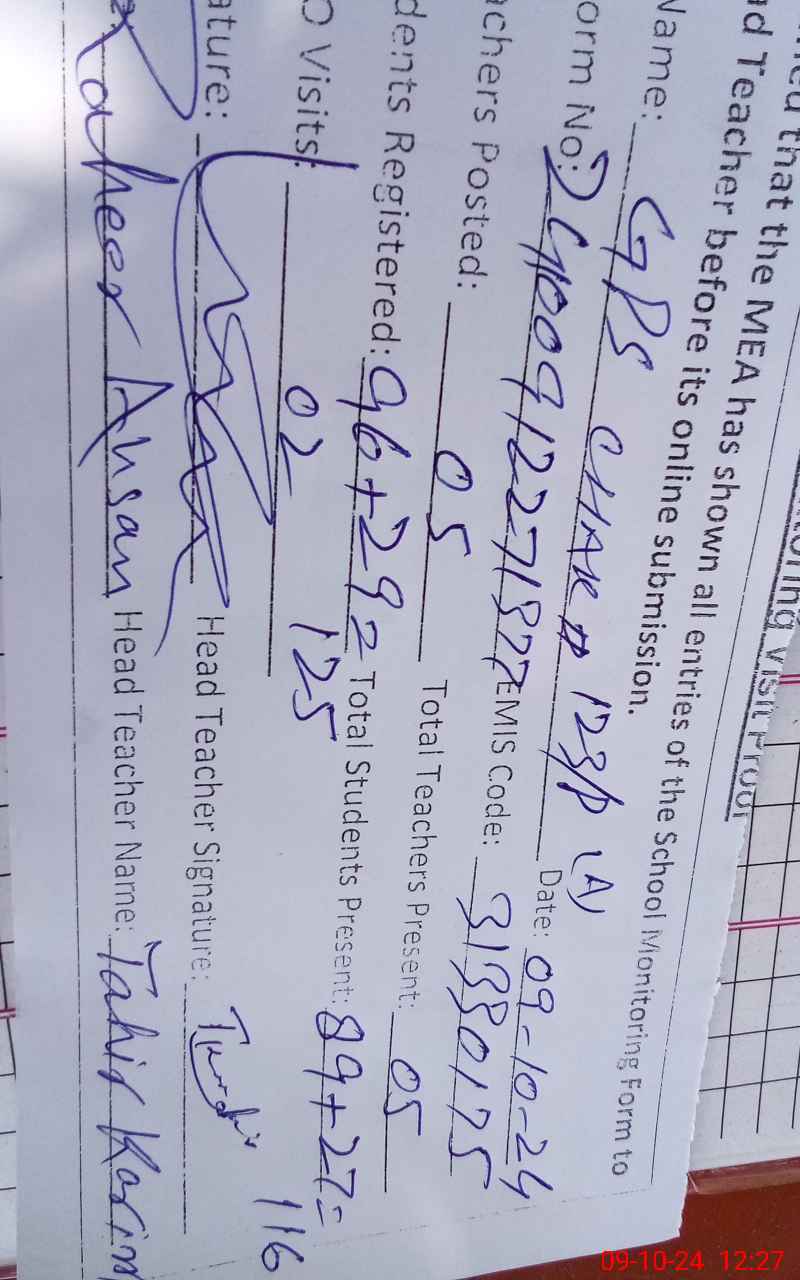 oring Visit Proof
that the MEA has shown all entries of the School Monitoring Form to
d Teacher before its online submission.
Name: GPS CHAK # 123/P (A) Date: 09-10-24
orm No: EMIS Code: 31330175
achers Posted: 05 Total Teachers Present: 05
dents Registered: 96+29= 125 Total Students Present: 89+27= 116
O Visits: 02
ature: Head Teacher Signature:
Ahsan Head Teacher Name: Tahir Karim
09-10-24 12:27